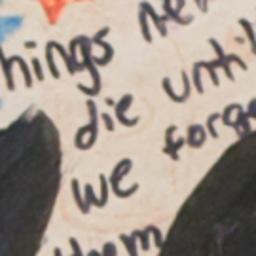 things never
die until
we forget
them